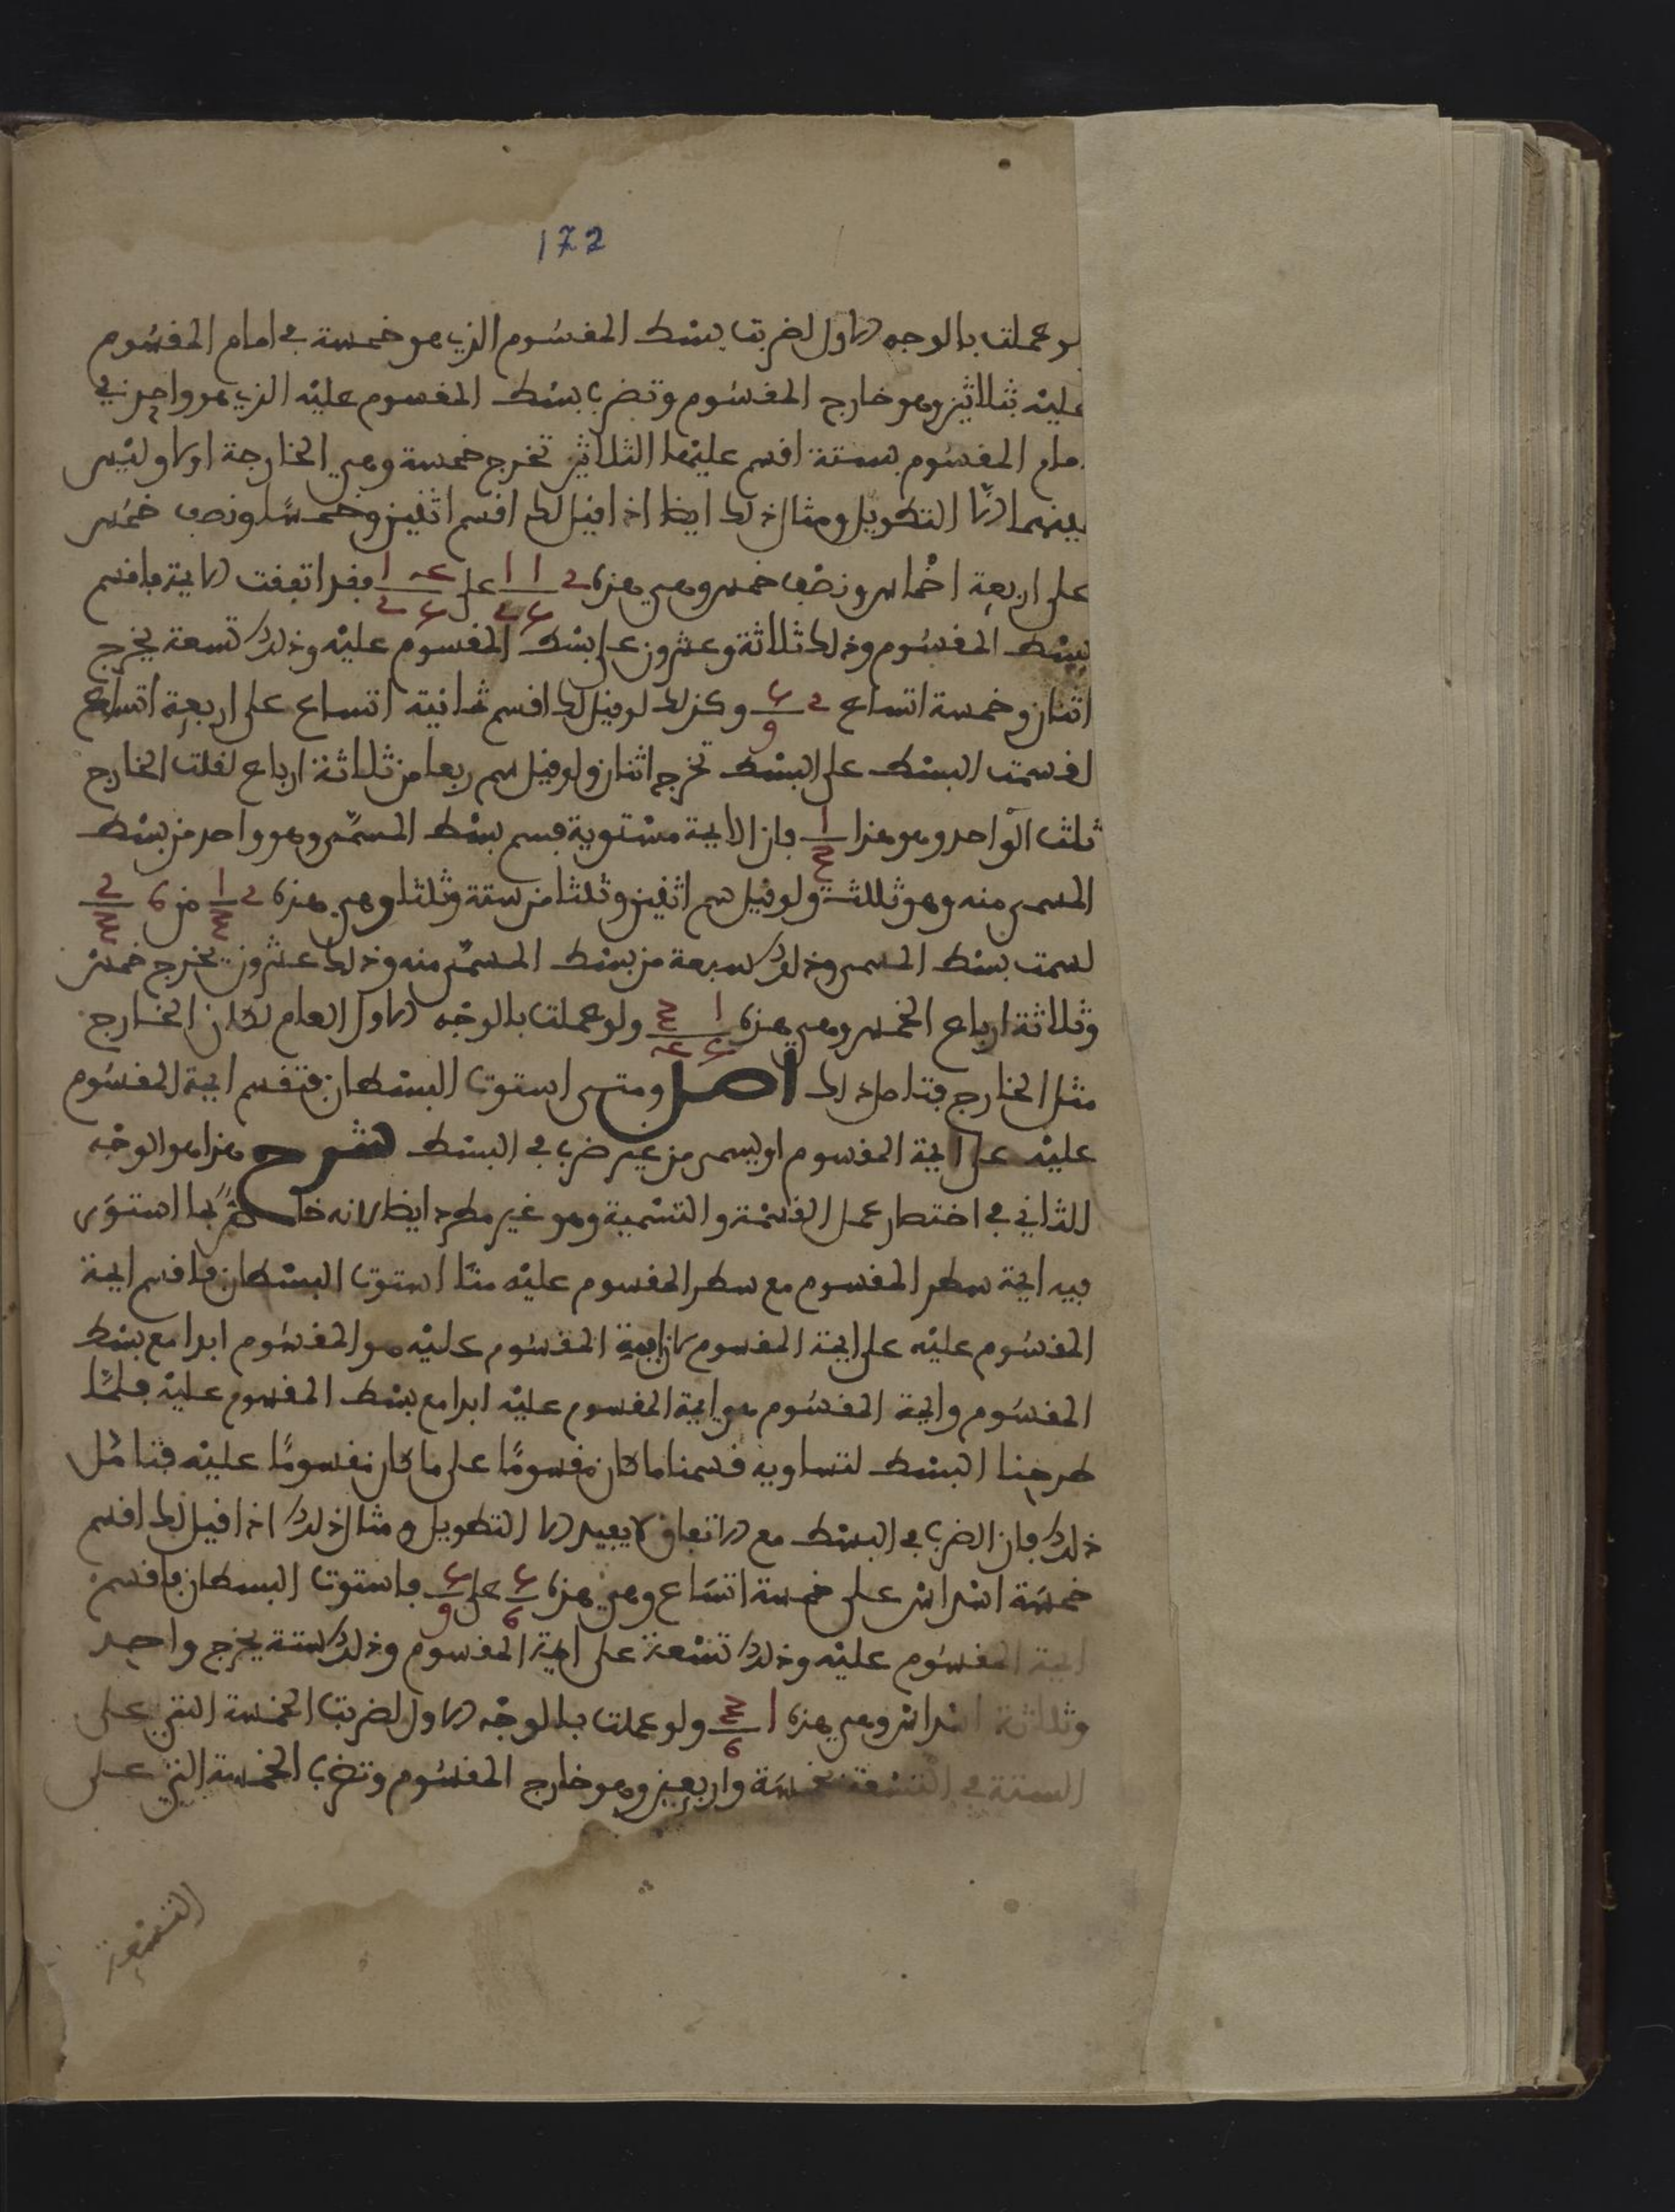 172
لو عملت بالوجه الاول لضربت بسط المقسوم الذي هو خمسة في امام المقسوم
عليه بثلاثين وهو خارج المقسوم وتضرب بسط المقسوم عليه الذي هو واحد في
امام المقسوم بستة اقسم عليها الثلاثين تخرج خمسة وهي الخارجة اولا وليس
بينهما الا التطويل ومثال ذلك ايضا اذا قيل لك اقسم اثنين وخمسا ونصف خمس
على اربعة اخماس ونصف خمس وهي هذه 2 1 1 على 4 1 فقد اتفقت الايمة فاقسم
5 2 5 2
بسط المقسوم وذلك ثلاثة وعشرون على بسط المقسوم عليه وذلك تسعة يخرج
اثنان وخمسة اتساع 2 5/9 وكذلك لو قيل لك اقسم ثمانية اتساع على اربعة اتساع
لقسمت البسط على البسط تخرج اثنان ولو قيل سم ربعا من ثلاثة ارباع لقلت الخارج
ثلث الواحد وهو هذا 1/3 فان الايمة مستوية فسم بسط المسمى وهو واحد من بسط
المسمى منه وهو ثلاثة ولو قيل سم اثنين وثلثا من ستة وثلثا وهي هذه 2 1/3 من 6 2/3
لسمت بسط المسمى وذلك سبعة من بسط المسمى منه وذلك عشرون يخرج خمس
وثلاثة ارباع الخمس وهي هذه 1 3 ولو عملت بالوجه الاول العام لكان الخارج
5 4
مثل الخارج فتامل ذلك اصل ومتى استوت البسطان فتقسم ايمة المقسوم
عليه على ايمة المقسوم او يسمى من غير ضرب في البسط شرح هذا هو الوجه
الثاني في اختصار عمل القسمة والتسمية وهو غير مطرد ايضا لانه خاص بما استوى
فيه ايمة سطر المقسوم مع سطر المقسوم عليه متى استوت البسطان فاقسم ايمة
المقسوم عليه على ايمة المقسوم لان ايمة المقسوم عليه هو المقسوم ابدا مع بسط
المقسوم وايمة المقسوم هو ايمة المقسوم عليه ابدا مع بسط المقسوم عليه فلما
طرحنا البسط لتساويه قسمنا ما كان مقسوما على ما كان مقسوما عليه فتامل
ذلك فان الضرب في البسط مع الاتفاق لا يفيد الا التطويل ومثال ذلك اذا قيل لك اقسم
خمسة اسداس على خمسة اتساع وهي هذه 5/6 على 5/9 فاستوت البسطان فاقسم
ايمة المقسوم عليه وذلك تسعة على ايمة المقسوم وذلك ستة يخرج واحد
وثلاثة اسداس وهي هذه 1 3/6 ولو عملت بالوجه الاول لضربت الخمسة التي على
الستة في التسعة بخمسة واربعين وهو خارج المقسوم وتضرب الخمسة التي على
التسعة